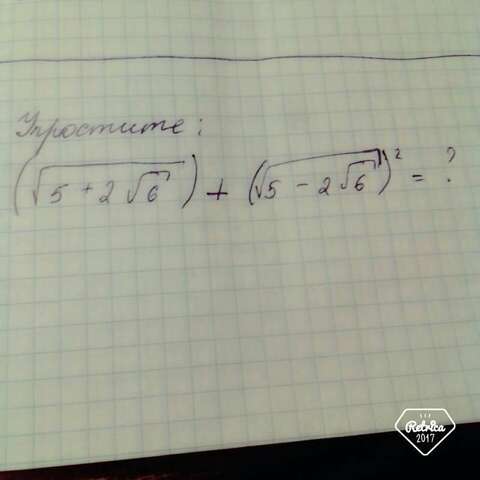 Упростите:
(√(5 + 2√6)) + (√(5 - 2√6))² = ?
Retrica
2017